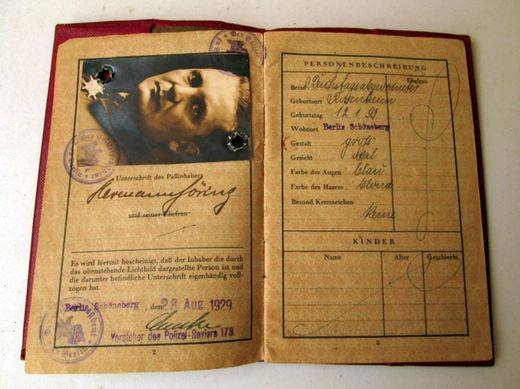 Unterschrift des Paßinhabers
Hermann Göring
und seiner Ehefrau
Es wird hiermit bescheinigt, daß der Inhaber die durch
das obenstehende Lichtbild dargestellte Person ist und
die darunter befindliche Unterschrift eigenhändig voll-
zogen hat.
Berlin Schöneberg, den 28 Aug. 1929
Vorsteher des Polizei-Reviers 173
2
PERSONENBESCHREIBUNG
Ehefrau
Beruf Reichstagsabgeordneter
Geburtsort Rosenheim
Geburtstag 12.1.93
Wohnort Berlin-Schöneberg
Gestalt groß
Gesicht oval
Farbe der Augen blau
Farbe des Haares blond
Besond. Kennzeichen
keine
KINDER
Name Alter Geschlecht
3